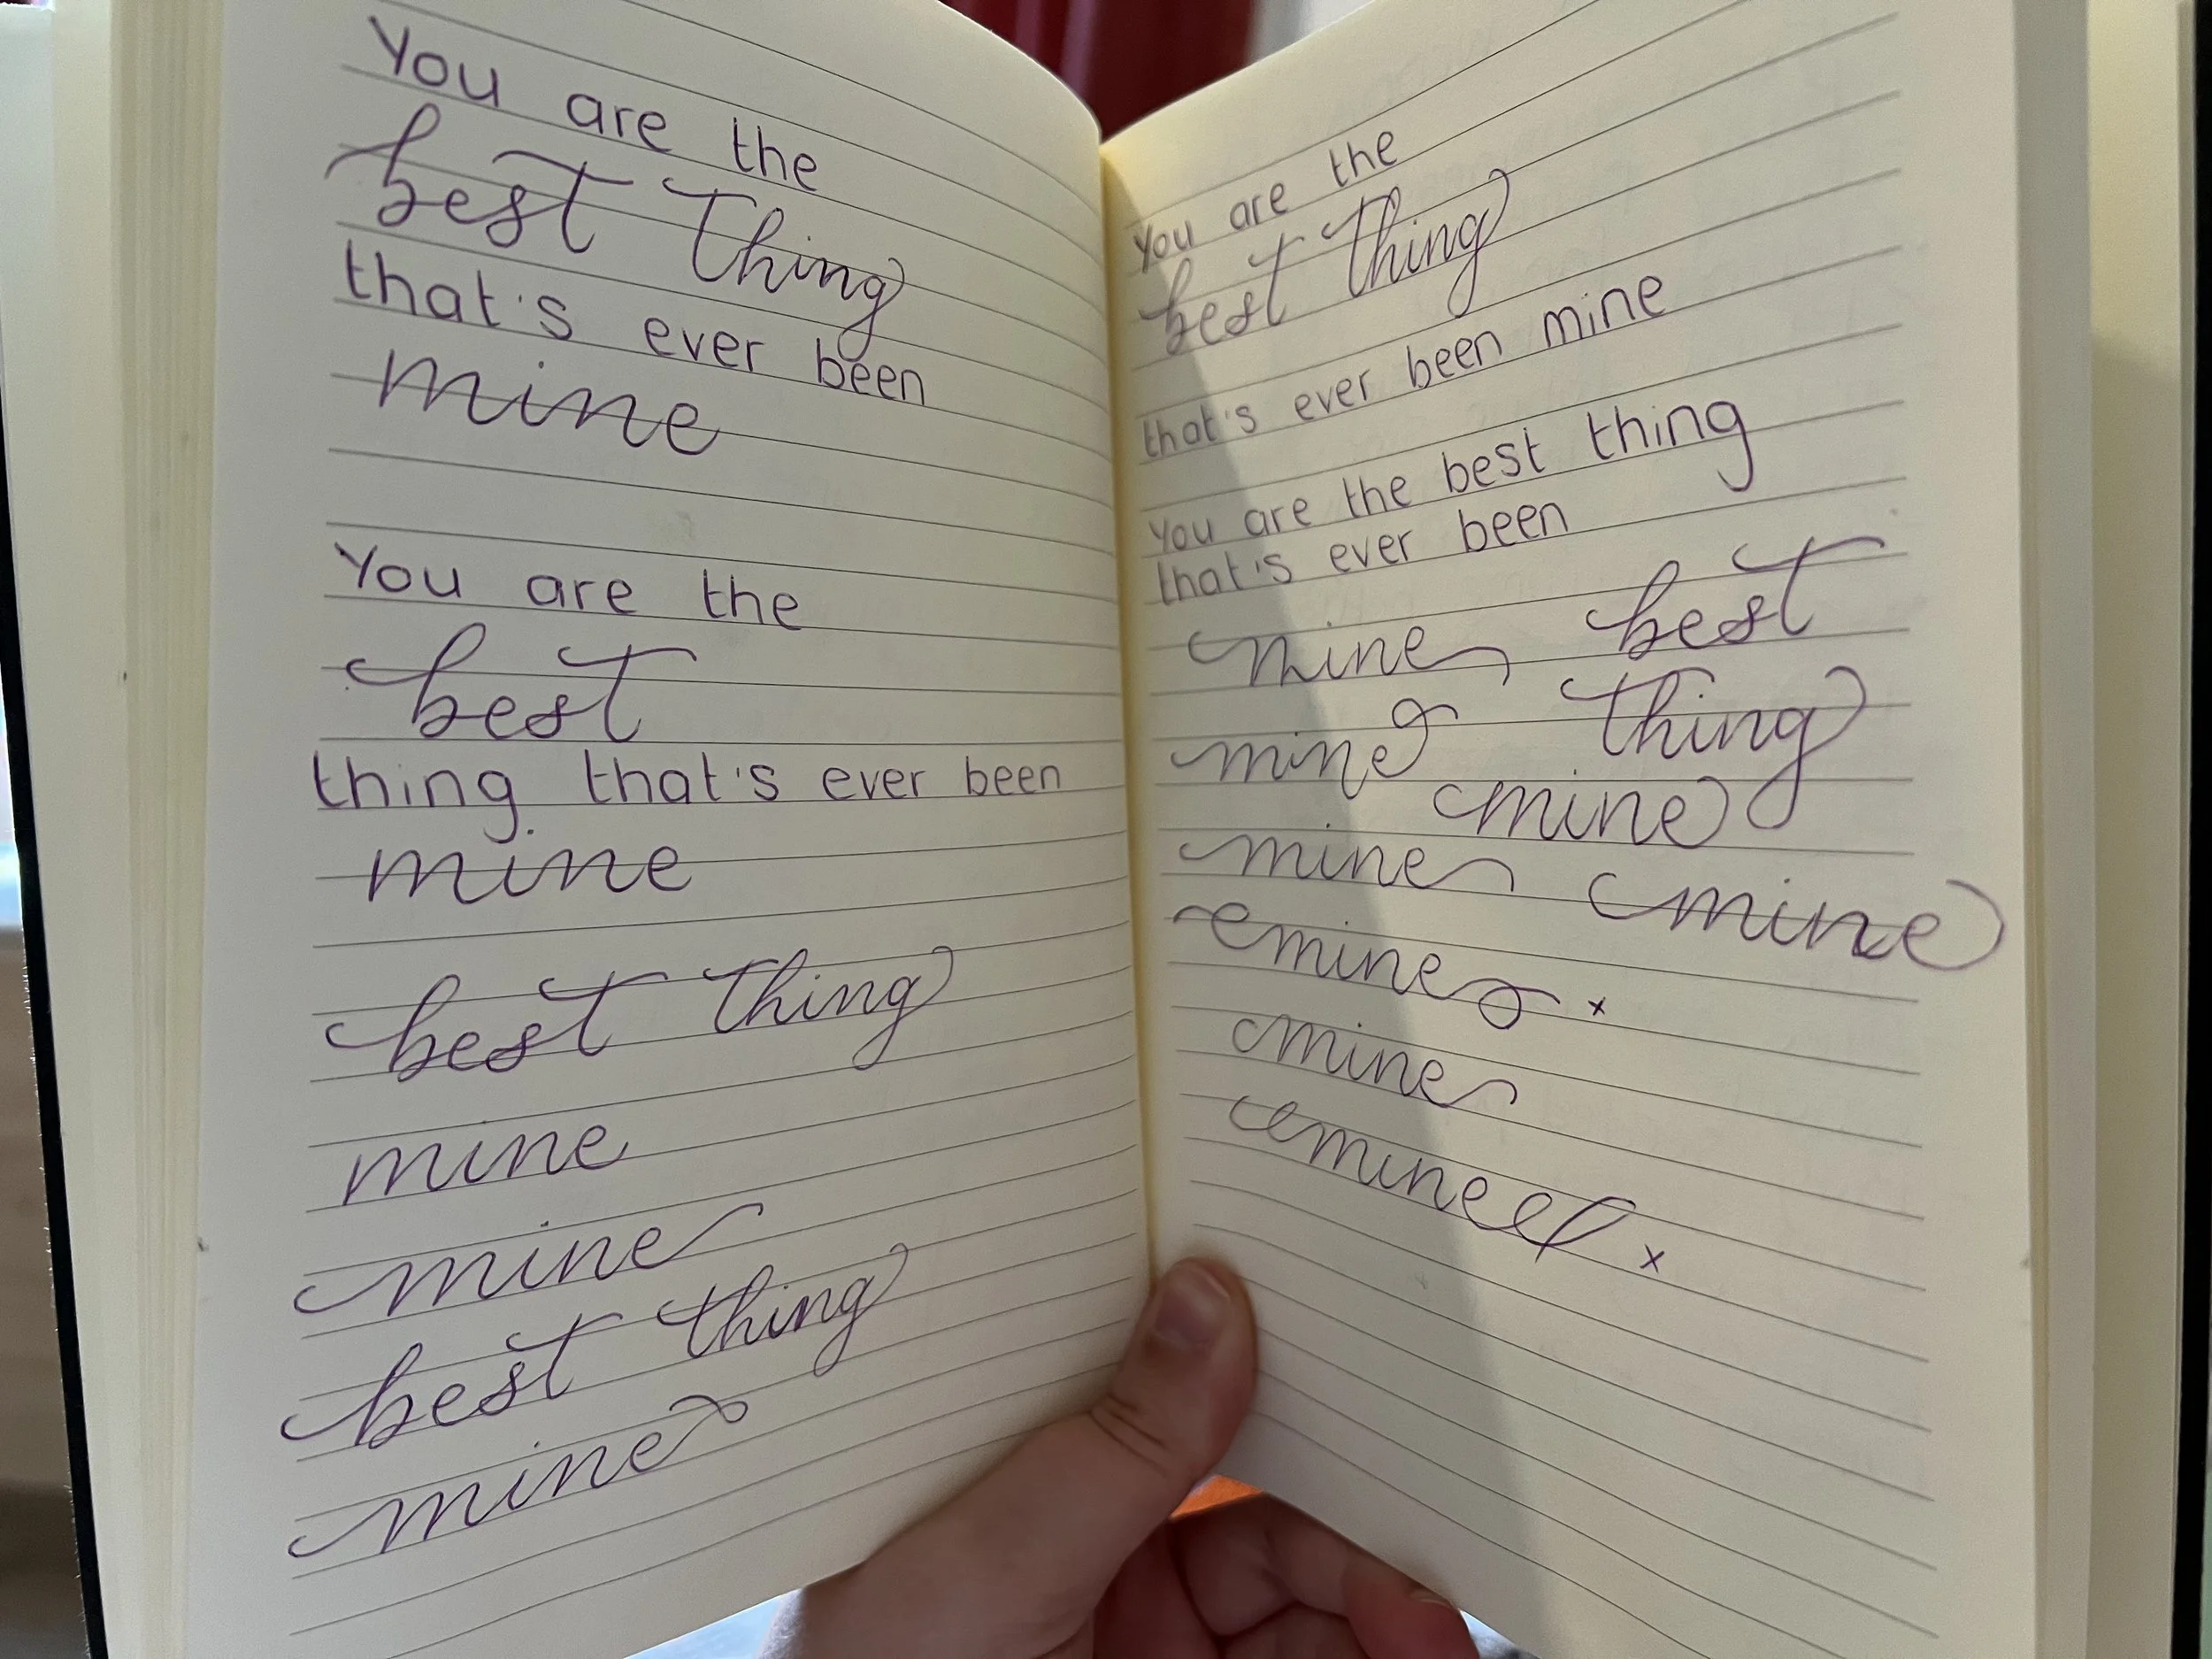 You are the
best thing
that's ever been
mine
You are the
best
thing that's ever been
mine
best thing
mine
mine
best thing
mine
You are the
best thing
that's ever been mine
You are the best thing
that's ever been
mine best
mine thing
mine
mine mine
mine x
mine
mine x